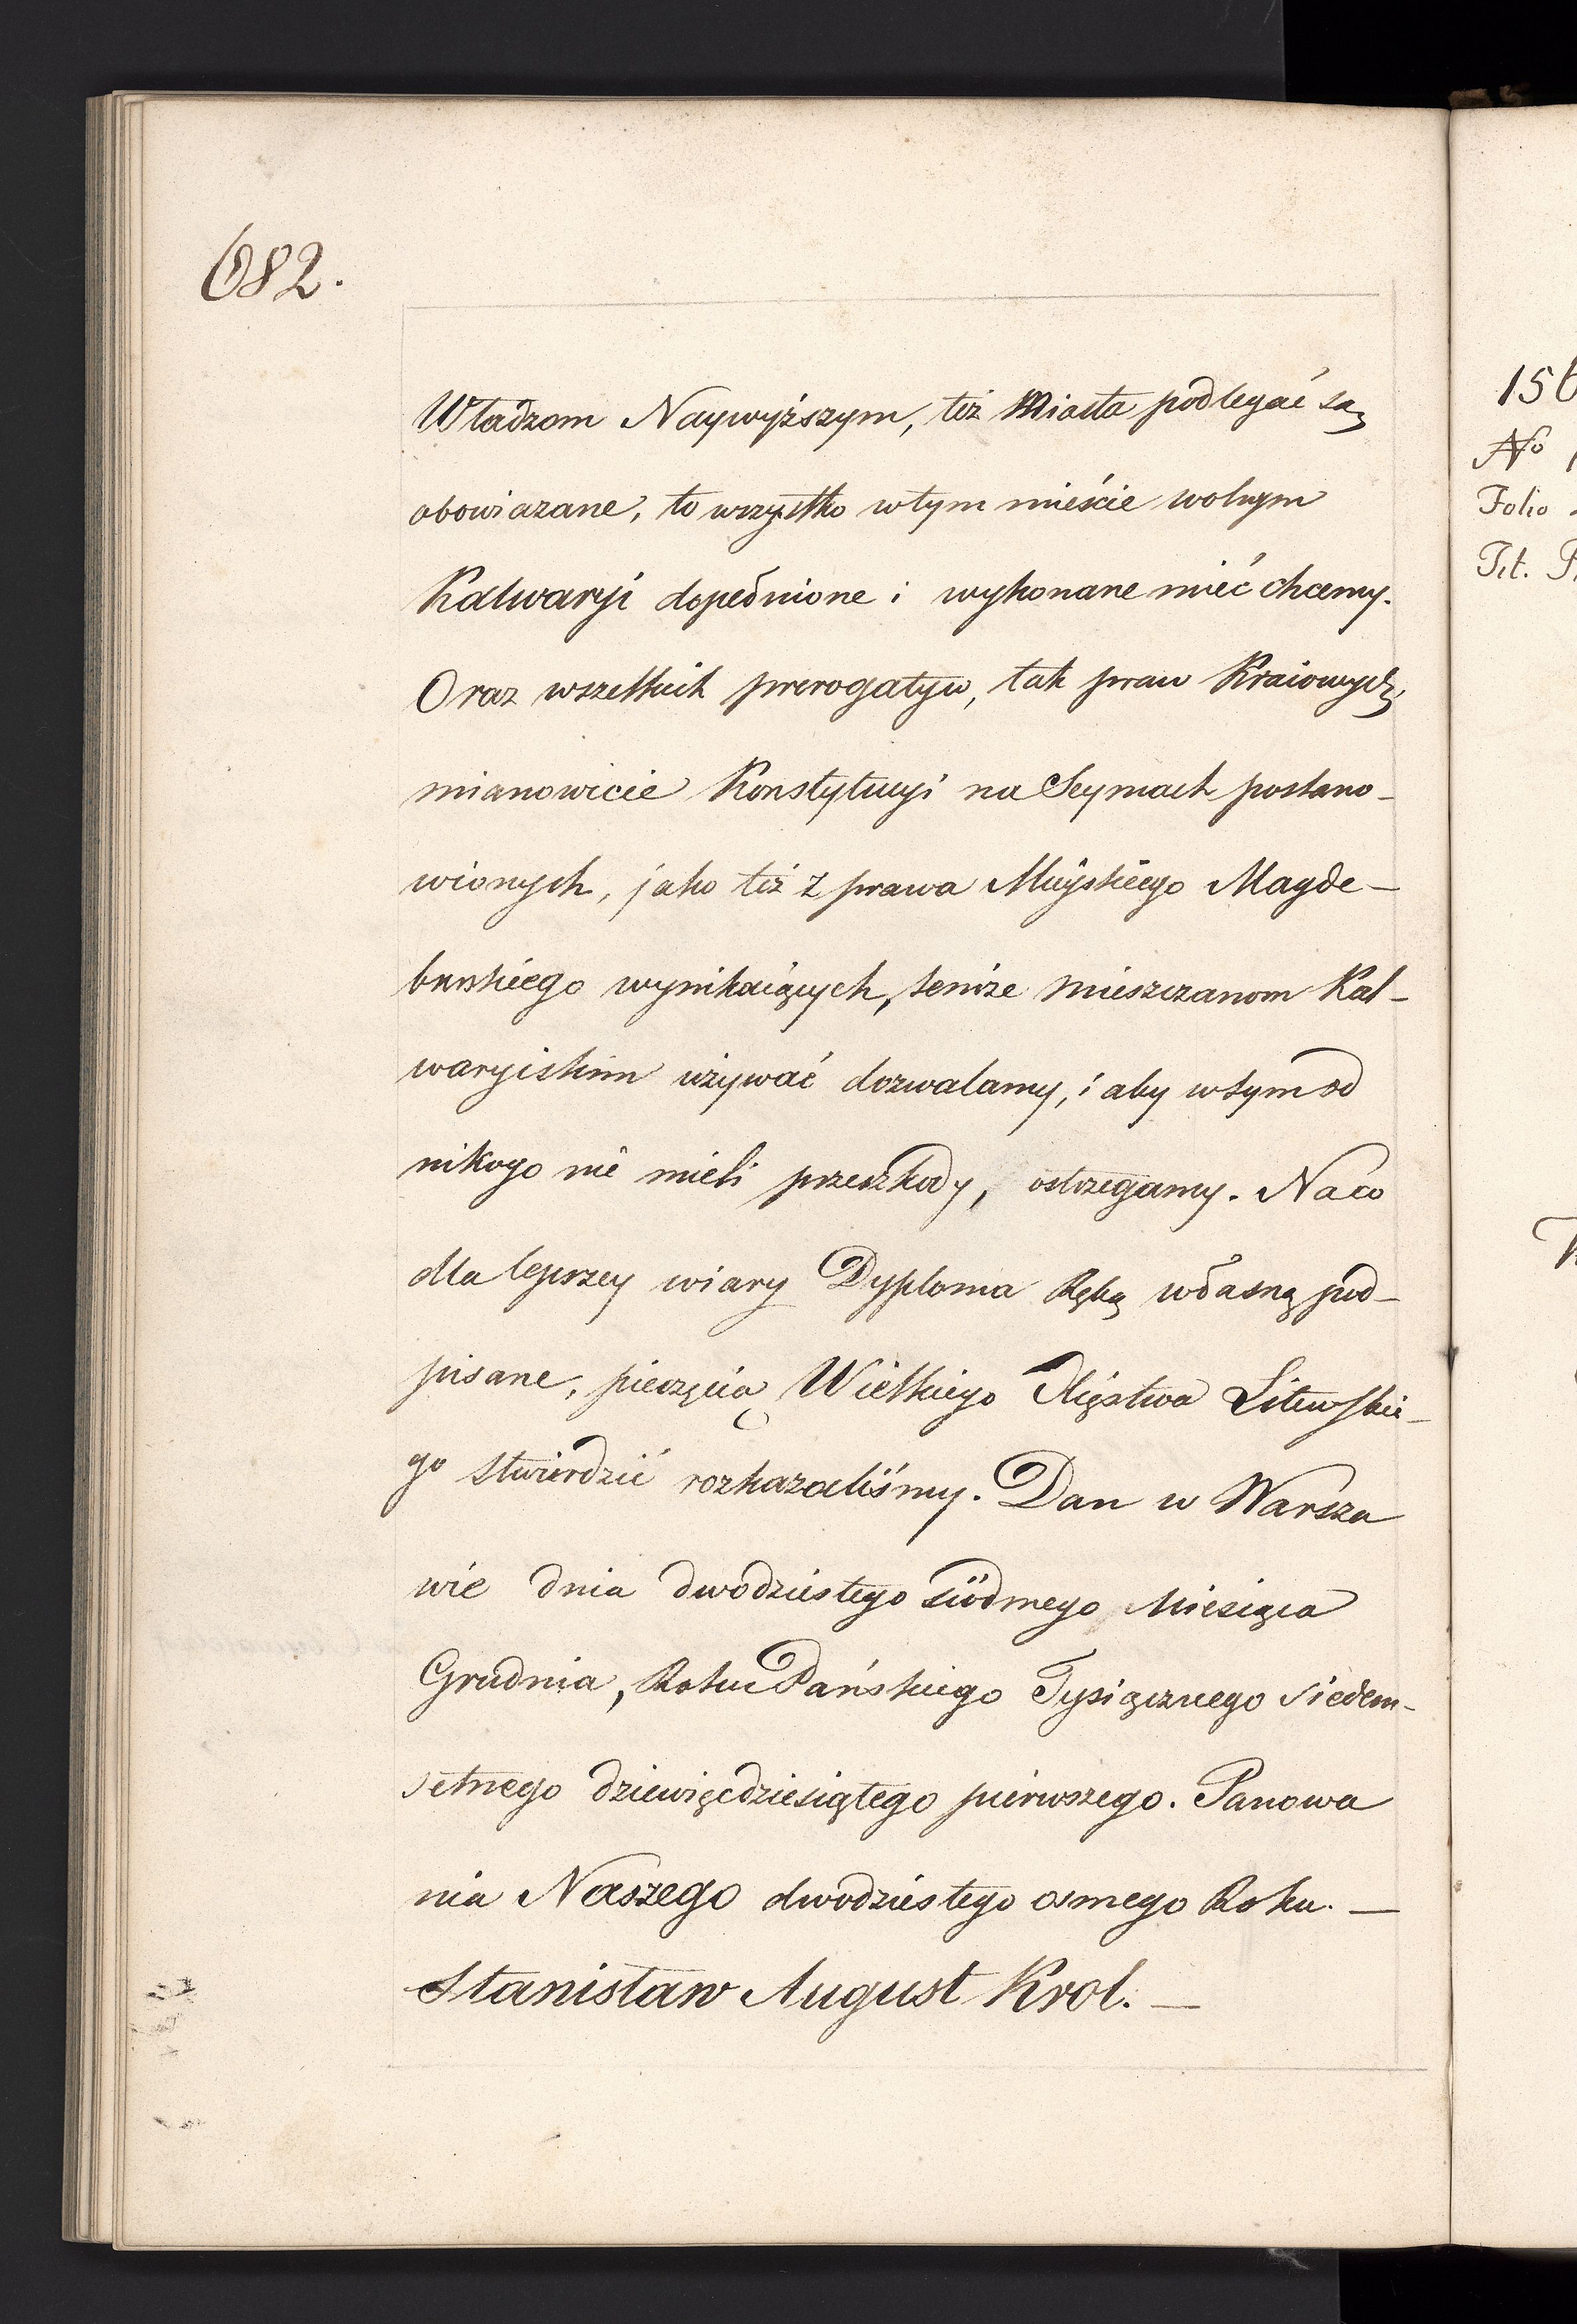 682.
Władzom Naywyższym, też Miasta podlegać są
obowiazane, to wszystko w tym mieście wolnym
Kalwaryi dopełnione i wykonane mieć chcemy.
Oraz wszelkich prerogatyw, tak praw Kraiowych,
mianowicie Konstytucyi na Seymach postano-
wionych, jako też z prawa Mieyskiego Magde-
burskiego wynikaiących, temże mieszczanom Kal-
waryiskim używać dozwalamy, i aby w tym od
nikogo nie mieli przeszkody, ostrzegamy. Na co
dla lepszey wiary Dyploma Ręką własną pod-
pisane, pieczęcią Wielkiego Xięstwa Litewskie-
go stwierdzić rozkazaliśmy. Dan w Warsza
wie dnia dwodziestego siódmego Miesiąca
Grudnia, Roku Pańskiego Tysiącznego siedem-
setnego dziewięćdziesiątego pierwszego. Panowa
nia Naszego dwodziestego osmego Roku. —
Stanisław August Krol. —
156
No 1
Folio
Tit. P.